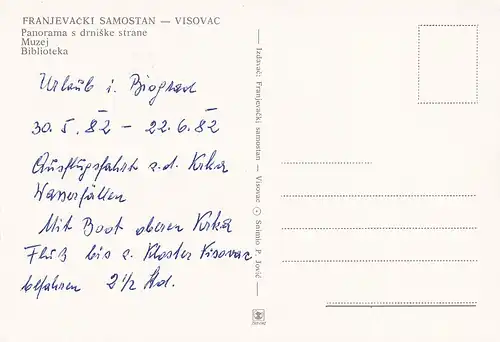 FRANJEVAČKI SAMOSTAN — VISOVAC
Panorama s drniške strane
Muzej
Biblioteka
Urlaub i. Biograd
30.5.82 – 22.6.82
Ausflugsfahrt z.d. Krka
Wasserfällen
Mit Boot oberen Krka
Fluß bis z. Kloster Visovac
befahren 2½ Std.
— Izdavač: Franjevački samostan — Visovac ⊙ Snimio P. Jović —